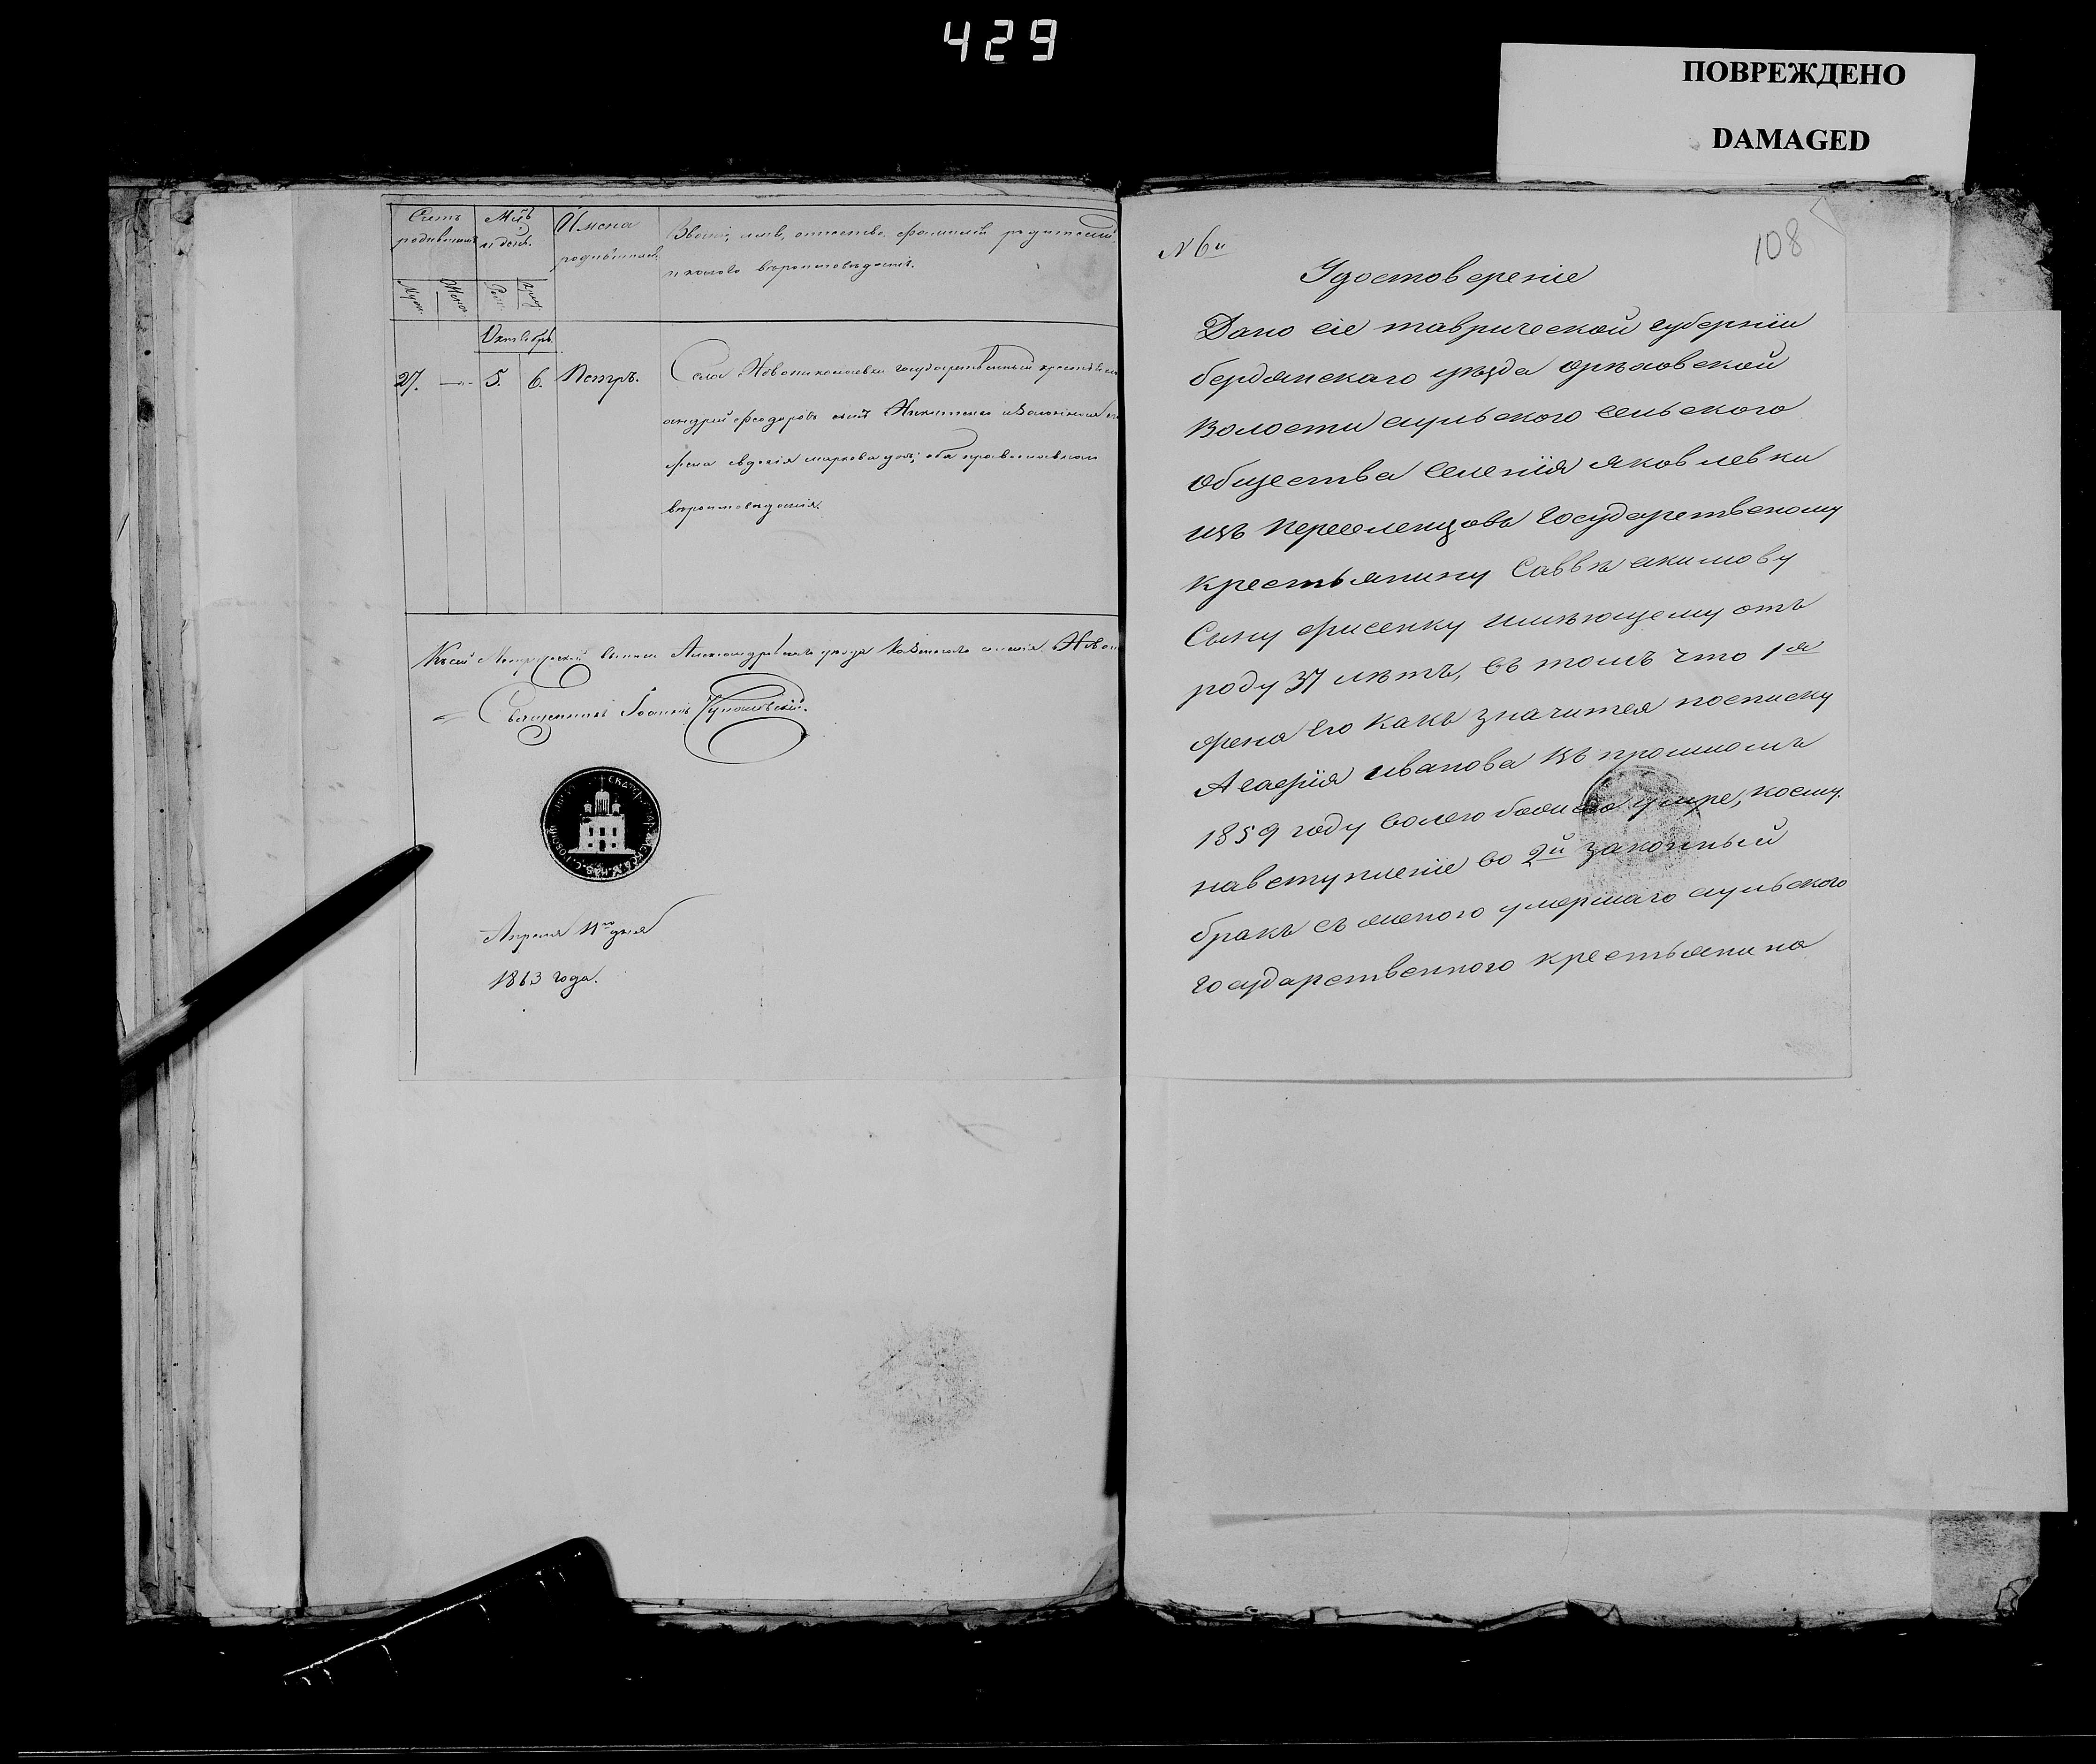 429
ПОВРЕЖДЕНО
DAMAGED
Счетъ родившихся
Мцъ и день.
Имена родившихся
Званіе, имя, отчество, фамилія родителей
и какого вѣроисповѣданія.
Муж.
Жен.
Рож.
Крещ.
Октябрь.
27.
5.
6.
Петръ.
Села Новониколаевки государственный
андрей феодоровъ сынъ Никитенко
жена евдокія маркова обa православнаго
вѣроисповѣданія.
Къ сей Метрической выписи Александровскаго уѣзда
Священникъ Іоаннъ
Апреля 11го дня
1863 года.
108
№ 6й
Удостовереніе
Дано сіе таврической губерніи
бердянскаго уѣзда орѣховской
волости аульского сельского
общества селенія яковлевки
изъ переселенцовъ Государственому
крестьянину Саввѣ акимову
Сыну фисенку имѣющему отъ
роду 37 лѣтъ, въ томъ что 1я
жена его какъ значится посписку
Агафія иванова въ прошломъ
1859 году волею божиею умре, коему
навступленіе во 2й законный
бракъ съ женого умершаго аульского
государственного крестьянина